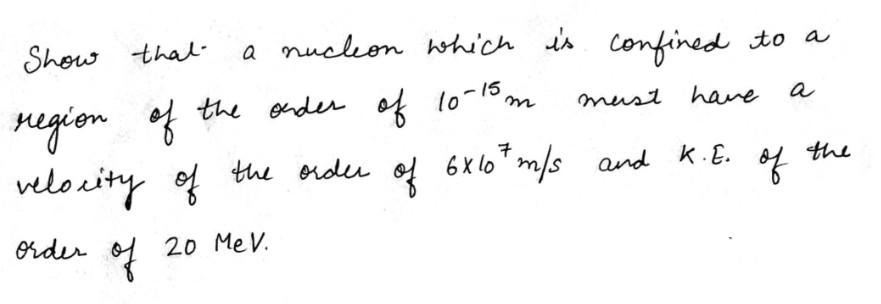 Show that a nucleon which is confined to a
region of the order of 10⁻¹⁵ m must have a
velocity of the order of 6x10⁷ m/s and K.E. of the
order of 20 MeV.